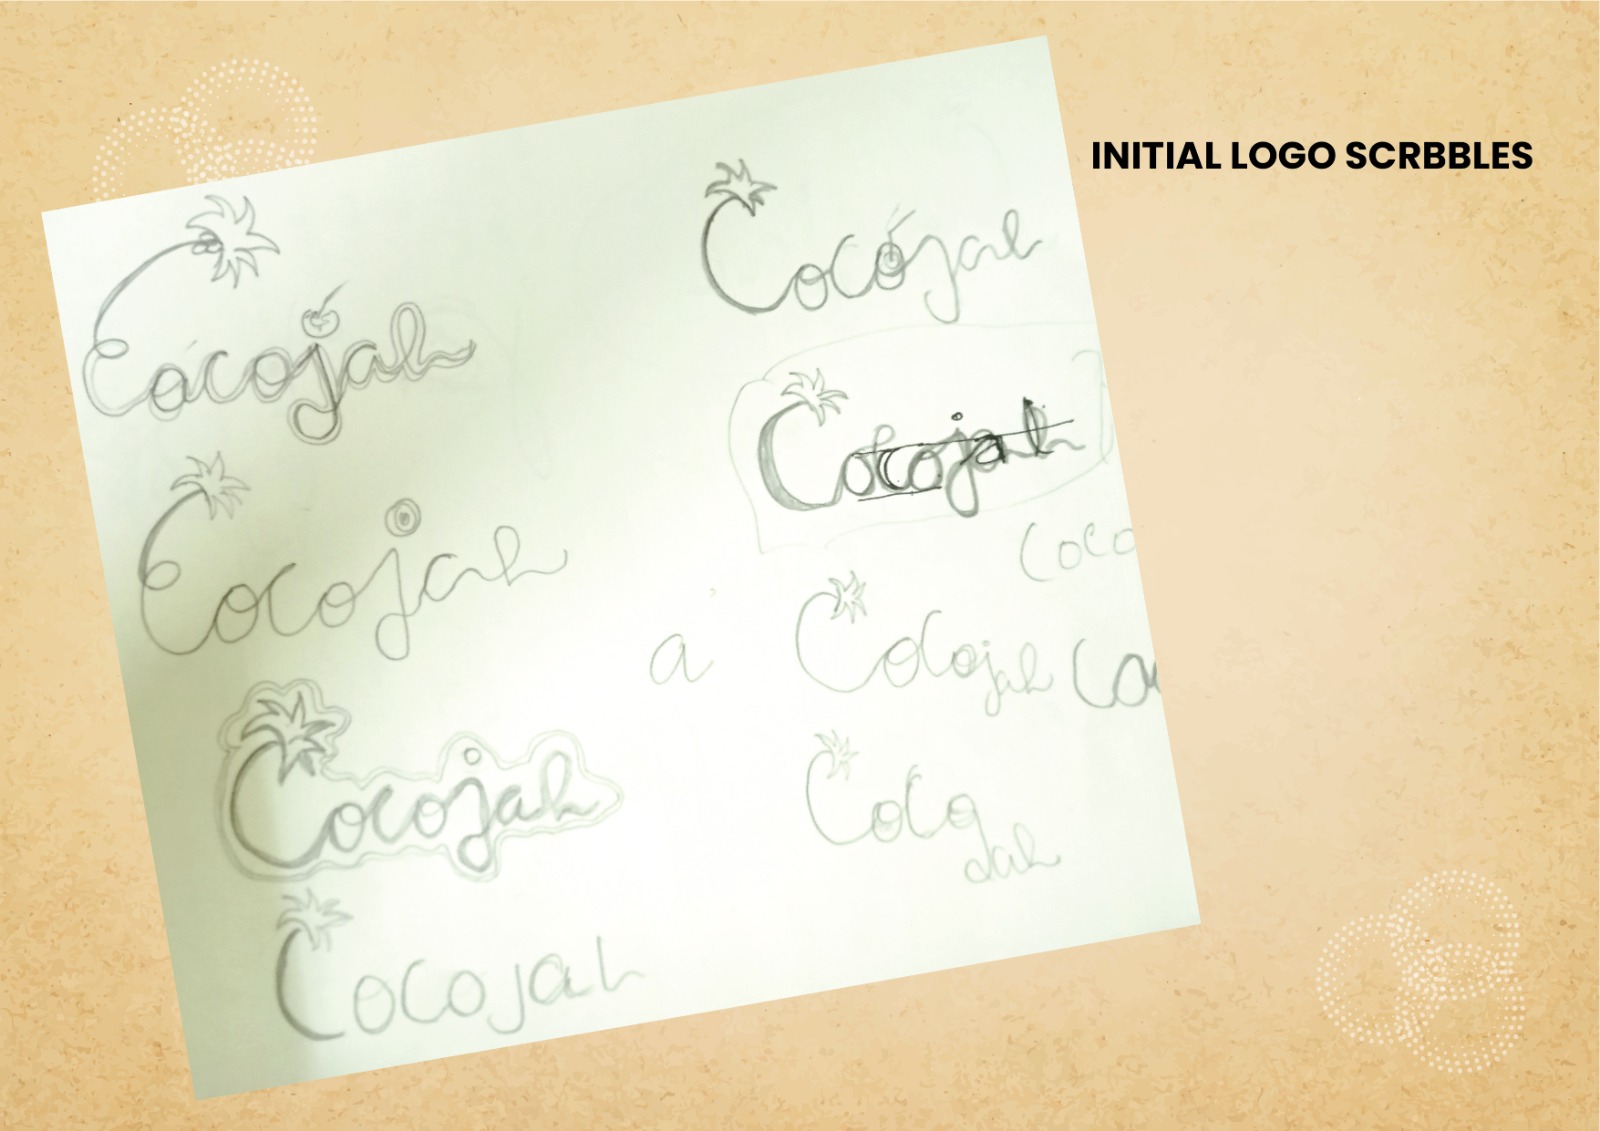 INITIAL LOGO SCRBBLES
Cocojah
Cocojah
Cocojah
Cocojah
Cocojah
Cocojah
Coco
a
Cocojah
Coco
Jah